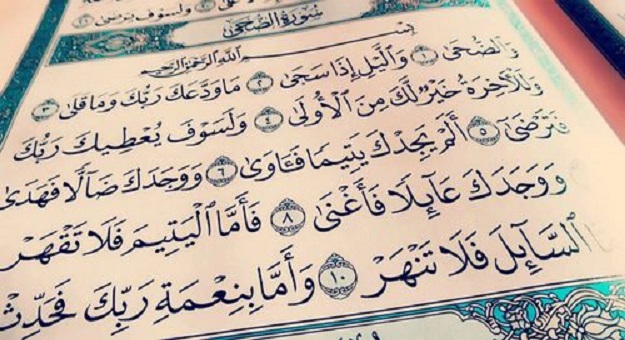 وَلَسَوْفَ يَرْضَىٰ
سُورَةُ الضُّحَىٰ
بِسْمِ ٱللَّهِ ٱلرَّحْمَٰنِ ٱلرَّحِيمِ
وَٱلضُّحَىٰ ١ وَٱلَّيْلِ إِذَا سَجَىٰ ٢ مَا وَدَّعَكَ رَبُّكَ وَمَا قَلَىٰ ٣
وَلَلْـَٔاخِرَةُ خَيْرٌ لَّكَ مِنَ ٱلْأُولَىٰ ٤ وَلَسَوْفَ يُعْطِيكَ رَبُّكَ
فَتَرْضَىٰٓ ٥ أَلَمْ يَجِدْكَ يَتِيمًا فَـَٔاوَىٰ ٦ وَوَجَدَكَ ضَآلًّا فَهَدَىٰ
وَوَجَدَكَ عَآئِلًا فَأَغْنَىٰ ٨ فَأَمَّا ٱلْيَتِيمَ فَلَا تَقْهَرْ
ٱلسَّآئِلَ فَلَا تَنْهَرْ ١٠ وَأَمَّا بِنِعْمَةِ رَبِّكَ فَحَدِّثْ